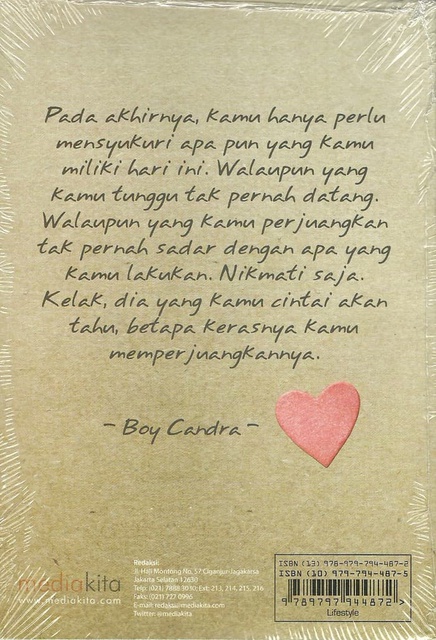 Pada akhirnya, kamu hanya perlu
mensyukuri apa pun yang kamu
miliki hari ini. Walaupun yang
kamu tunggu tak pernah datang.
Walaupun yang kamu perjuangkan
tak pernah sadar dengan apa yang
kamu lakukan. Nikmati saja.
Kelak, dia yang kamu cintai akan
tahu, betapa kerasnya kamu
memperjuangkannya.
- Boy Candra -
mediakita
www.mediakita.com
Redaksi:
Jl. Haji Montong No. 57 Ciganjur-Jagakarsa
Jakarta Selatan 12630
Telp: (021) 7888 3030; Ext: 213, 214, 215, 216
Faks: (021) 727 0996
E-mail: redaksi@mediakita.com
Twitter: @mediakita
ISBN (13) 978-979-794-487-2
ISBN (10) 979-794-487-5
9 789797 944872 >
Lifestyle